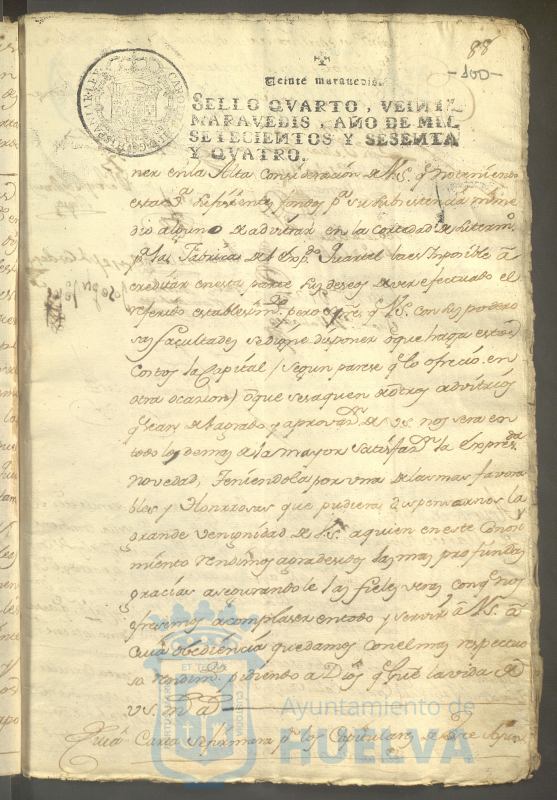 88
-100-
Veinte maravedis.
SELLO QVARTO, VEINTE
MARAVEDIS, AÑO DE MIL
SETECIENTOS Y SESENTA
Y QVATRO.
ner en la Alta Consideracion de V.S. q.e no teniendo
esta fondos p.a su subsistencia ni me
dio alguno de advitrar en la cortedad de su term.o
p.a las Fabricas del Exp.do Quartel la es Imposible a
creditar en esta parte sus deseos de ver efectuado el
referido establesim.to pero q.e V.S. con sus podero
sas facultades se digne disponer o que haga estos
Costos la Capital (segun parese q.e lo ofrecio en
otra ocacion) o que se saquen de otros advitrios
q.e sean de l agrado y aprov.on de V.S. nos sera en
todo lo demas de la mayor satisfaz.on la expresada
novedad, Teniendola por una de las mas favora
bles y Honrrosas que pudiera dispensarnos la
grande venignidad de V.S. a quien en este Conosi
miento rendimos agradesidos las mas profundas
gracias asegurandole las fieles veras con q.e nos
ofresemos a complaser en todo y servir a V.S. a
Cuia obediencia quedamos con el mas respectuo
so rendim.to pidiendo a Dios q.e gu.e la vida de
V.S. m.s a.s
Cuia Carta se firmara p.r los Capitulares de este Ayun
Ayuntamiento de
HUELVA